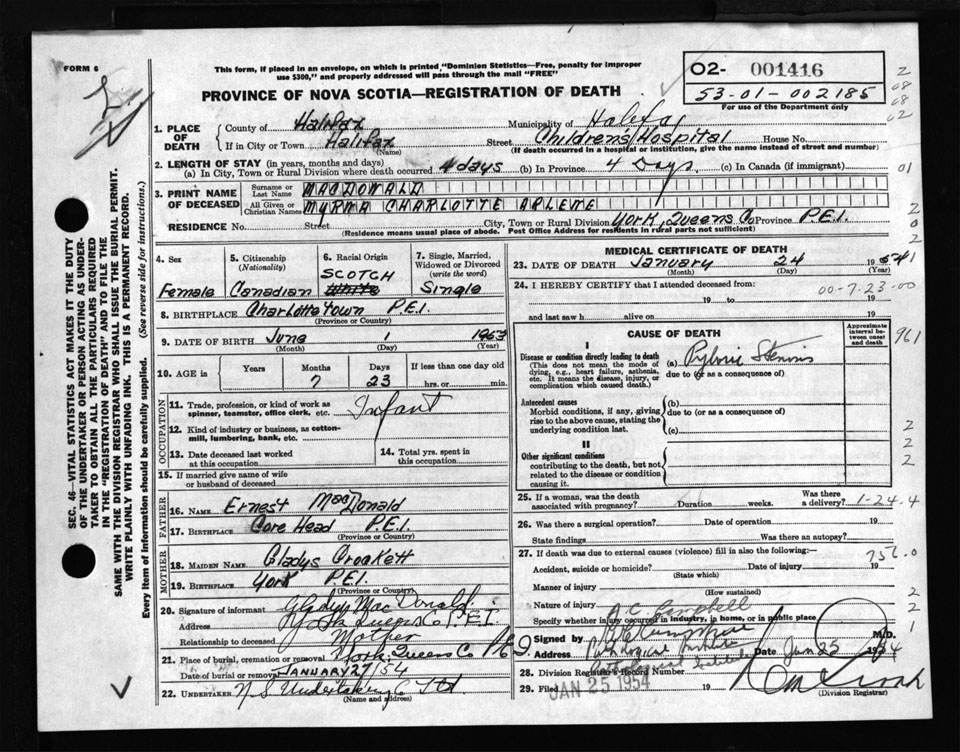 FORM 6
This form, if placed in an envelope, on which is printed "Dominion Statistics—Free, penalty for improper
use $300," and properly addressed will pass through the mail "FREE"
PROVINCE OF NOVA SCOTIA—REGISTRATION OF DEATH
02- 001416
53-01-002185
For use of the Department only
2
08
08
62
1. PLACE OF DEATH
County of Halifax Municipality of Halifax
If in City or Town Halifax (Name) Street Children's Hospital House No.
(If death occurred in a hospital or institution, give the name instead of street and number)
2. LENGTH OF STAY (in years, months and days)
(a) In City, Town or Rural Division where death occurred 4 days (b) In Province 4 Days (c) In Canada (if immigrant)
01
3. PRINT NAME OF DECEASED
Surname or Last Name MACDONALD
All Given or Christian Names MYRNA CHARLOTTE ARLENE
RESIDENCE No. Street City, Town or Rural Division York, Queens Co Province P.E.I.
(Residence means usual place of abode. Post Office Address for residents in rural parts not sufficient)
2
0
2
4. Sex
Female
5. Citizenship (Nationality)
Canadian
6. Racial Origin
SCOTCH
White
7. Single, Married, Widowed or Divorced (write the word)
Single
8. BIRTHPLACE Charlottetown P.E.I.
(Province or Country)
9. DATE OF BIRTH June 1 1953
(Month) (Day) (Year)
10. AGE in
Years Months Days If less than one day old
7 23 hrs. or min.
OCCUPATION
11. Trade, profession, or kind of work as
spinner, teamster, office clerk, etc. Infant
12. Kind of industry or business, as cotton-
mill, lumbering, bank, etc.
13. Date deceased last worked
at this occupation
14. Total yrs. spent in
this occupation
15. If married give name of wife
or husband of deceased
FATHER
16. NAME Ernest MacDonald
17. BIRTHPLACE Head P.E.I.
(Province or Country)
MOTHER
18. MAIDEN NAME Gladys Crockett
19. BIRTHPLACE York P.E.I.
(Province or Country)
20. Signature of informant Gladys MacDonald
Address York Queens Co P.E.I.
Relationship to deceased Mother
21. Place of burial, cremation or removal York, Queens Co P.E.I.
Date of burial or removal JANUARY 27/54
22. UNDERTAKER N.S. Undertaking Co Ltd
(Name and address)
MEDICAL CERTIFICATE OF DEATH
23. DATE OF DEATH January 24 1954
(Month) (Day) (Year)
1
24. I HEREBY CERTIFY that I attended deceased from:
00-7-23-00
19 to 19
and last saw h alive on 19
CAUSE OF DEATH
Approximate interval between onset and death
961
I
Disease or condition directly leading to death
(This does not mean the mode of
dying, e.g., heart failure, asthenia,
etc. It means the disease, injury, or
complication which caused death.)
(a) Pyloric Stenosis
due to (or as a consequence of)
Antecedent causes
Morbid conditions, if any, giving
rise to the above cause, stating the
underlying condition last.
(b)
due to (or as a consequence of)
(c)
II
Other significant conditions
contributing to the death, but not
related to the disease or condition
causing it.
2
2
2
25. If a woman, was the death
associated with pregnancy? Duration weeks. Was there a delivery?
1-24.4
26. Was there a surgical operation? Date of operation 19
State findings Was there an autopsy?
27. If death was due to external causes (violence) fill in also the following:—
756.0
Accident, suicide or homicide? Date of injury 19
(State which)
Manner of injury
(How sustained)
2
Nature of injury
2
A.C. Campbell
Specify whether injury occurred in industry, in home, or in public place
1
Signed by M.D.
Address Pathological Institute Date Jan 25 1954
Pathological Institute
28. Division Registrar's Record Number
29. Filed JAN 25 1954
(Division Registrar)
SEC. 46—VITAL STATISTICS ACT MAKES IT THE DUTY
OF THE UNDERTAKER OR PERSON ACTING AS UNDER-
TAKER TO OBTAIN ALL THE PARTICULARS REQUIRED
IN THE "REGISTRATION OF DEATH" AND TO FILE THE
SAME WITH THE DIVISION REGISTRAR WHO SHALL ISSUE THE BURIAL PERMIT.
WRITE PLAINLY WITH UNFADING INK. THIS IS A PERMANENT RECORD.
Every item of information should be carefully supplied. (See reverse side for instructions.)